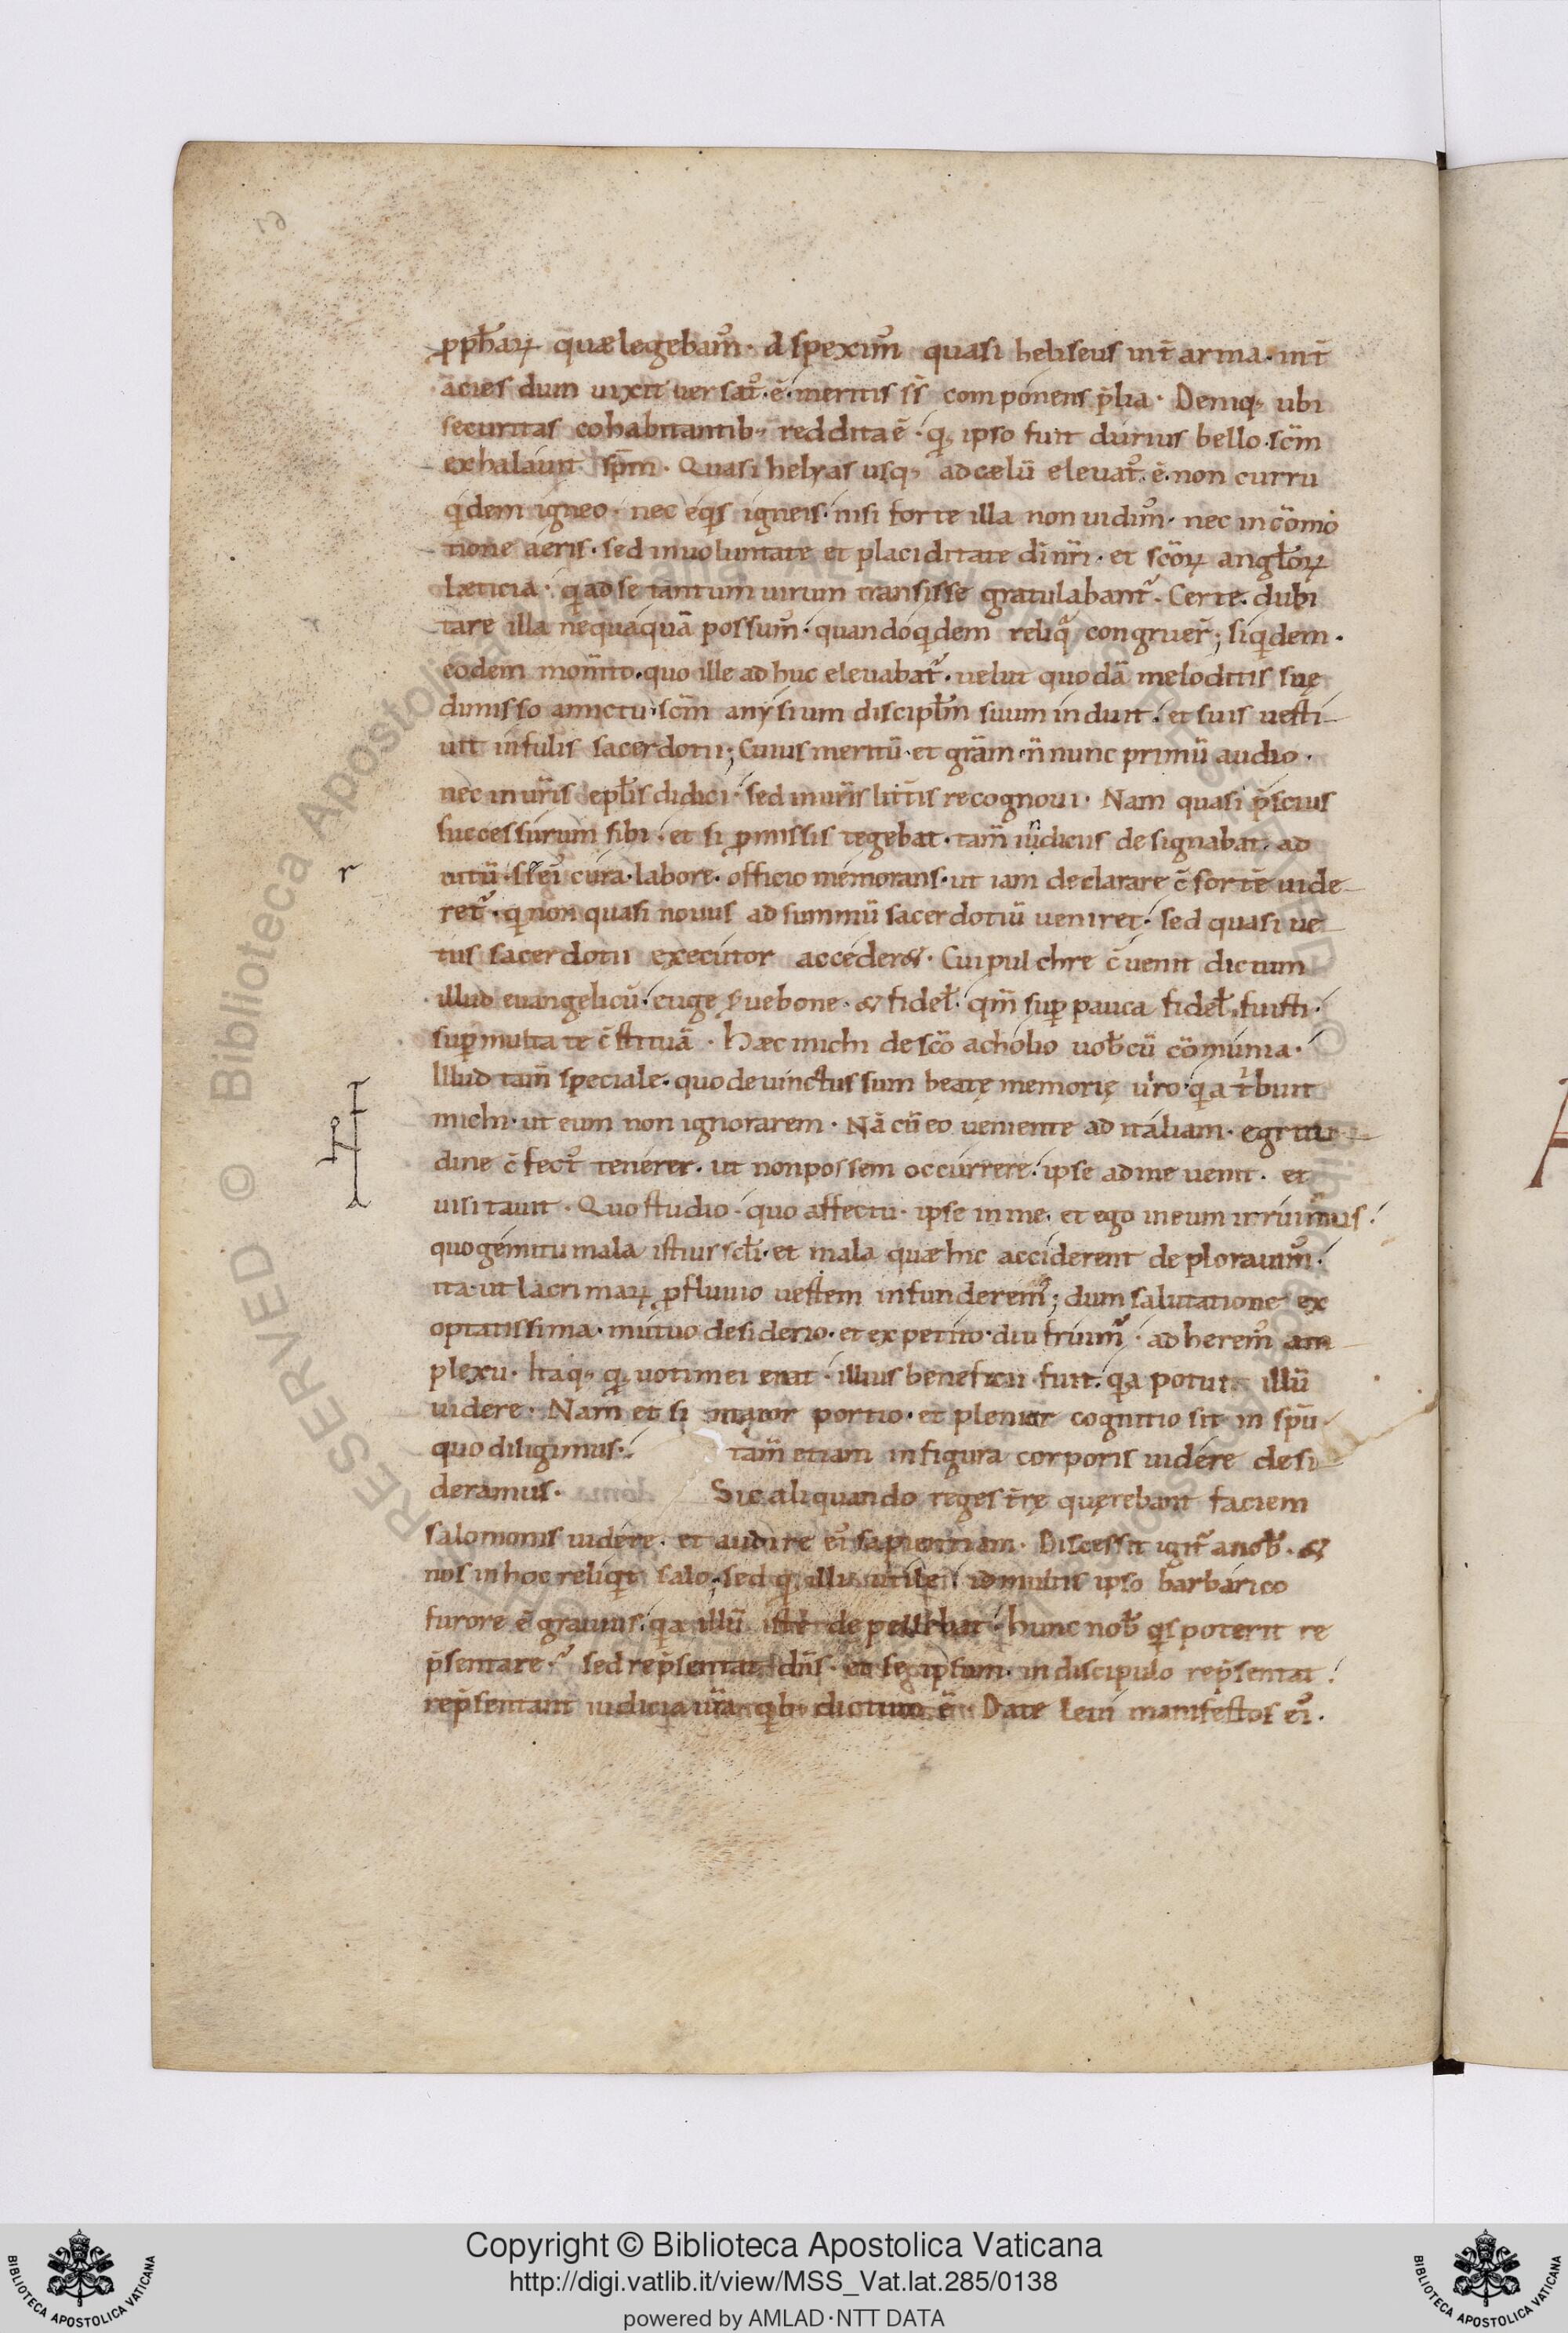 ꝓph̅aꝝ quælegebam᷒· d spexim᷒ quasi heliseus int̅ arma· int̅
acies dum uixit uersat᷒· ē· meritis ss̅ componens p̅lia· Deniq; ubi
securitas cohabitantib; reddita ē· qđ ipso fuit durius bello· scm̅
exhalauit sp̅m· Quasi helyas usq; ad cælū eleuat᷒· ē· non curru
qdem igneo· nec eqs igneis· nisi forte illa non uidim᷒· nec in cōmo
tione aeris· sed in uoluntate et placiditate dī nr̅i· et sc̅oꝝ angl̅oꝝ
læticia· qđ ad se tantum uirum transisse gratulabant᷑· Certe· dubi
tare illa nequaquā possum᷒· quandoqdem reliqa congruer̅; siqdem·
eodem mom̅to· quo ille ad huc eleuabat᷑· uelut quodā meloditis suę
dimisso amictu· scm̅ anysium discipl̅m suum induit· et suis uesti-
uit infulis sacerdotii; Cuius meritū· et grām· n̅ nunc primū audio·
nec in ur̅is epl̅is didici· sed in ur̅is litt̅is recognoui· Nam quasi p̅scius
successurum sibi· et si ꝓmissis tegebat· tam̅ iudiciis designabat· ad
iutū· s͛ ei᷒ cura· labore· officio memorans· ut iam declarare c̅sortē uide-
ret᷑· qđ non quasi nouus ad summū sacerdotiū ueniret· sed quasi ue-
tus sacerdotii executor accederet· Cui pulchre c̅uenit dictum
illud euangelicū· euge s͛ue bone· & fidel̅· qm̅ suꝑ pauca fidel̅ fuisti·
suꝑ multa te c̅stituā· Hæc michi de sc̅o acholio uob̅cū cōmunia·
Illud tam̅ speciale· quo deuinctus sum beatę memorię uiro· qa tͥbuit
michi· ut eum non ignorarem· Nā cū eo ueniente ad italiam· egritu-
dine c̅fect᷒ tenerer· ut non possem occurrere· ipse ad me uenit· et
uisitauit· Quo studio· quo affectu· ipse in me· et ego in eum irruimus·
quo gemitu mala istius scl̅i· et mala quæ hic acciderent deplorauim᷒·
ita· ut lacrimaꝝ ꝓfluuio uestem infunderem᷒; dum salutatione ex
optatissima· mutuo desiderio· et expetito· diu fruim᷑· ad herem᷒ am-
plexu· Itaq; qđ uoti mei erat· illius beneficii fuit· qa potui illū
uidere· Nam et si maior portio· et plenior cognitio sit in sp̅u·
quo diligimus· tam̅ etiam in figura corporis uidere desi-
deramus· Sic aliquando reges t̅rę quęrebant faciem
salomonis uidere· et audire ei᷒ sapientiam· Discessit igit᷑ a nob̅· &
nos in hoc reliqit salo· sed qđ illi utile· id multis ipso barbarico
furore ē grauius· qa illū iste depellebat· hunc nob̅ qs poterit re
p̅sentare· sed rep̅sentat dn̅s· et se ipsum in discipulo rep̅sentat·
rep̅sentant iudicia ur̅a qb; dictum ē· Date leui manifestos ei᷒·
r
Copyright © Biblioteca Apostolica Vaticana
http://digi.vatlib.it/view/MSS_Vat.lat.285/0138
powered by AMLAD·NTT DATA
BIBLIOTECA APOSTOLICA VATICANA
BIBLIOTECA APOSTOLICA VATICANA